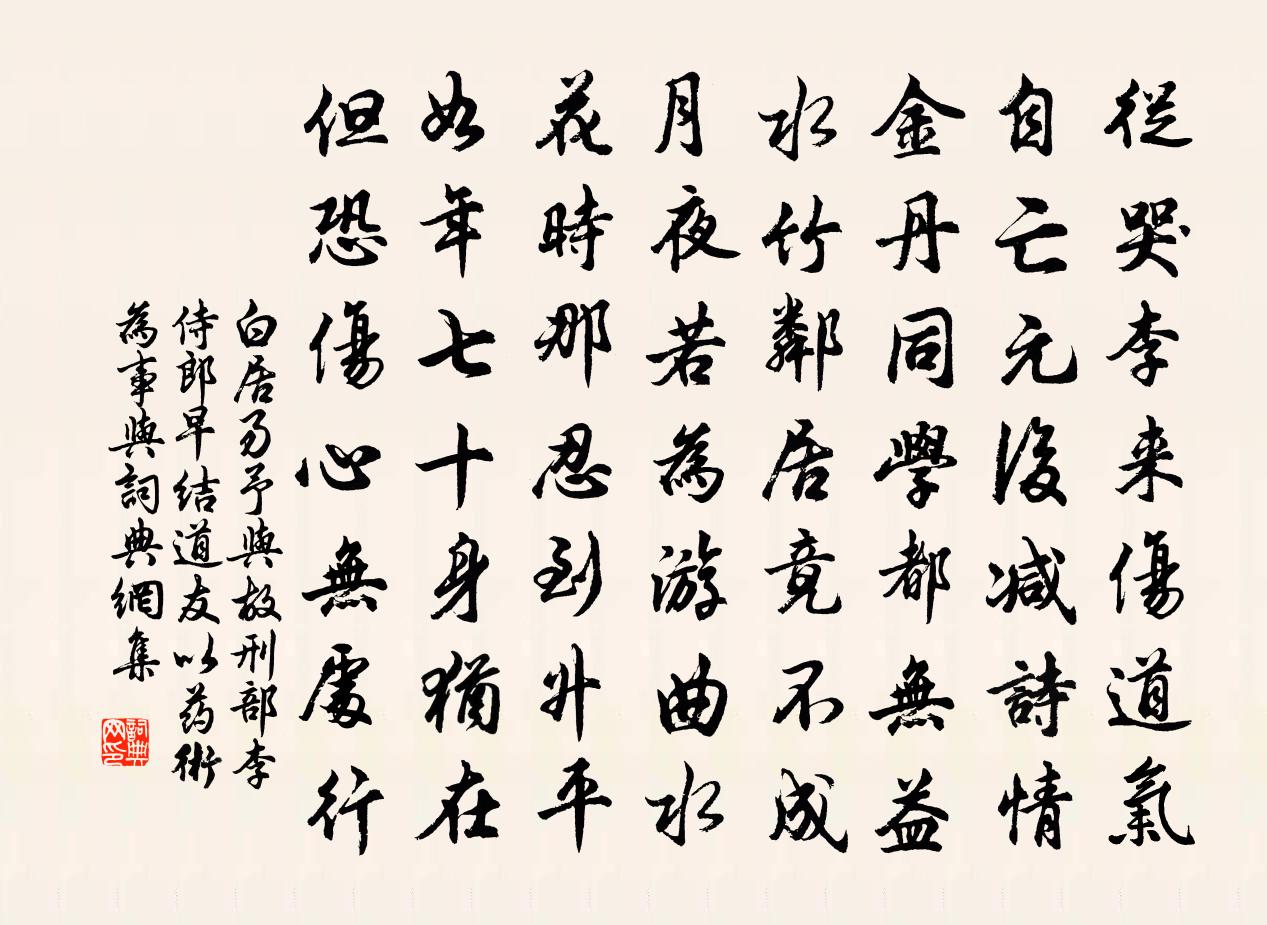 從哭李来傷道氣
自亡元後減詩情
金丹同學都無益
水竹鄰居竟不成
月夜若為游曲水
花時那忍到升平
如年七十身猶在
但恐傷心無處行
白居易予與故刑部李
侍郎早結道友以药術
為事與詞典網集
詞典網印